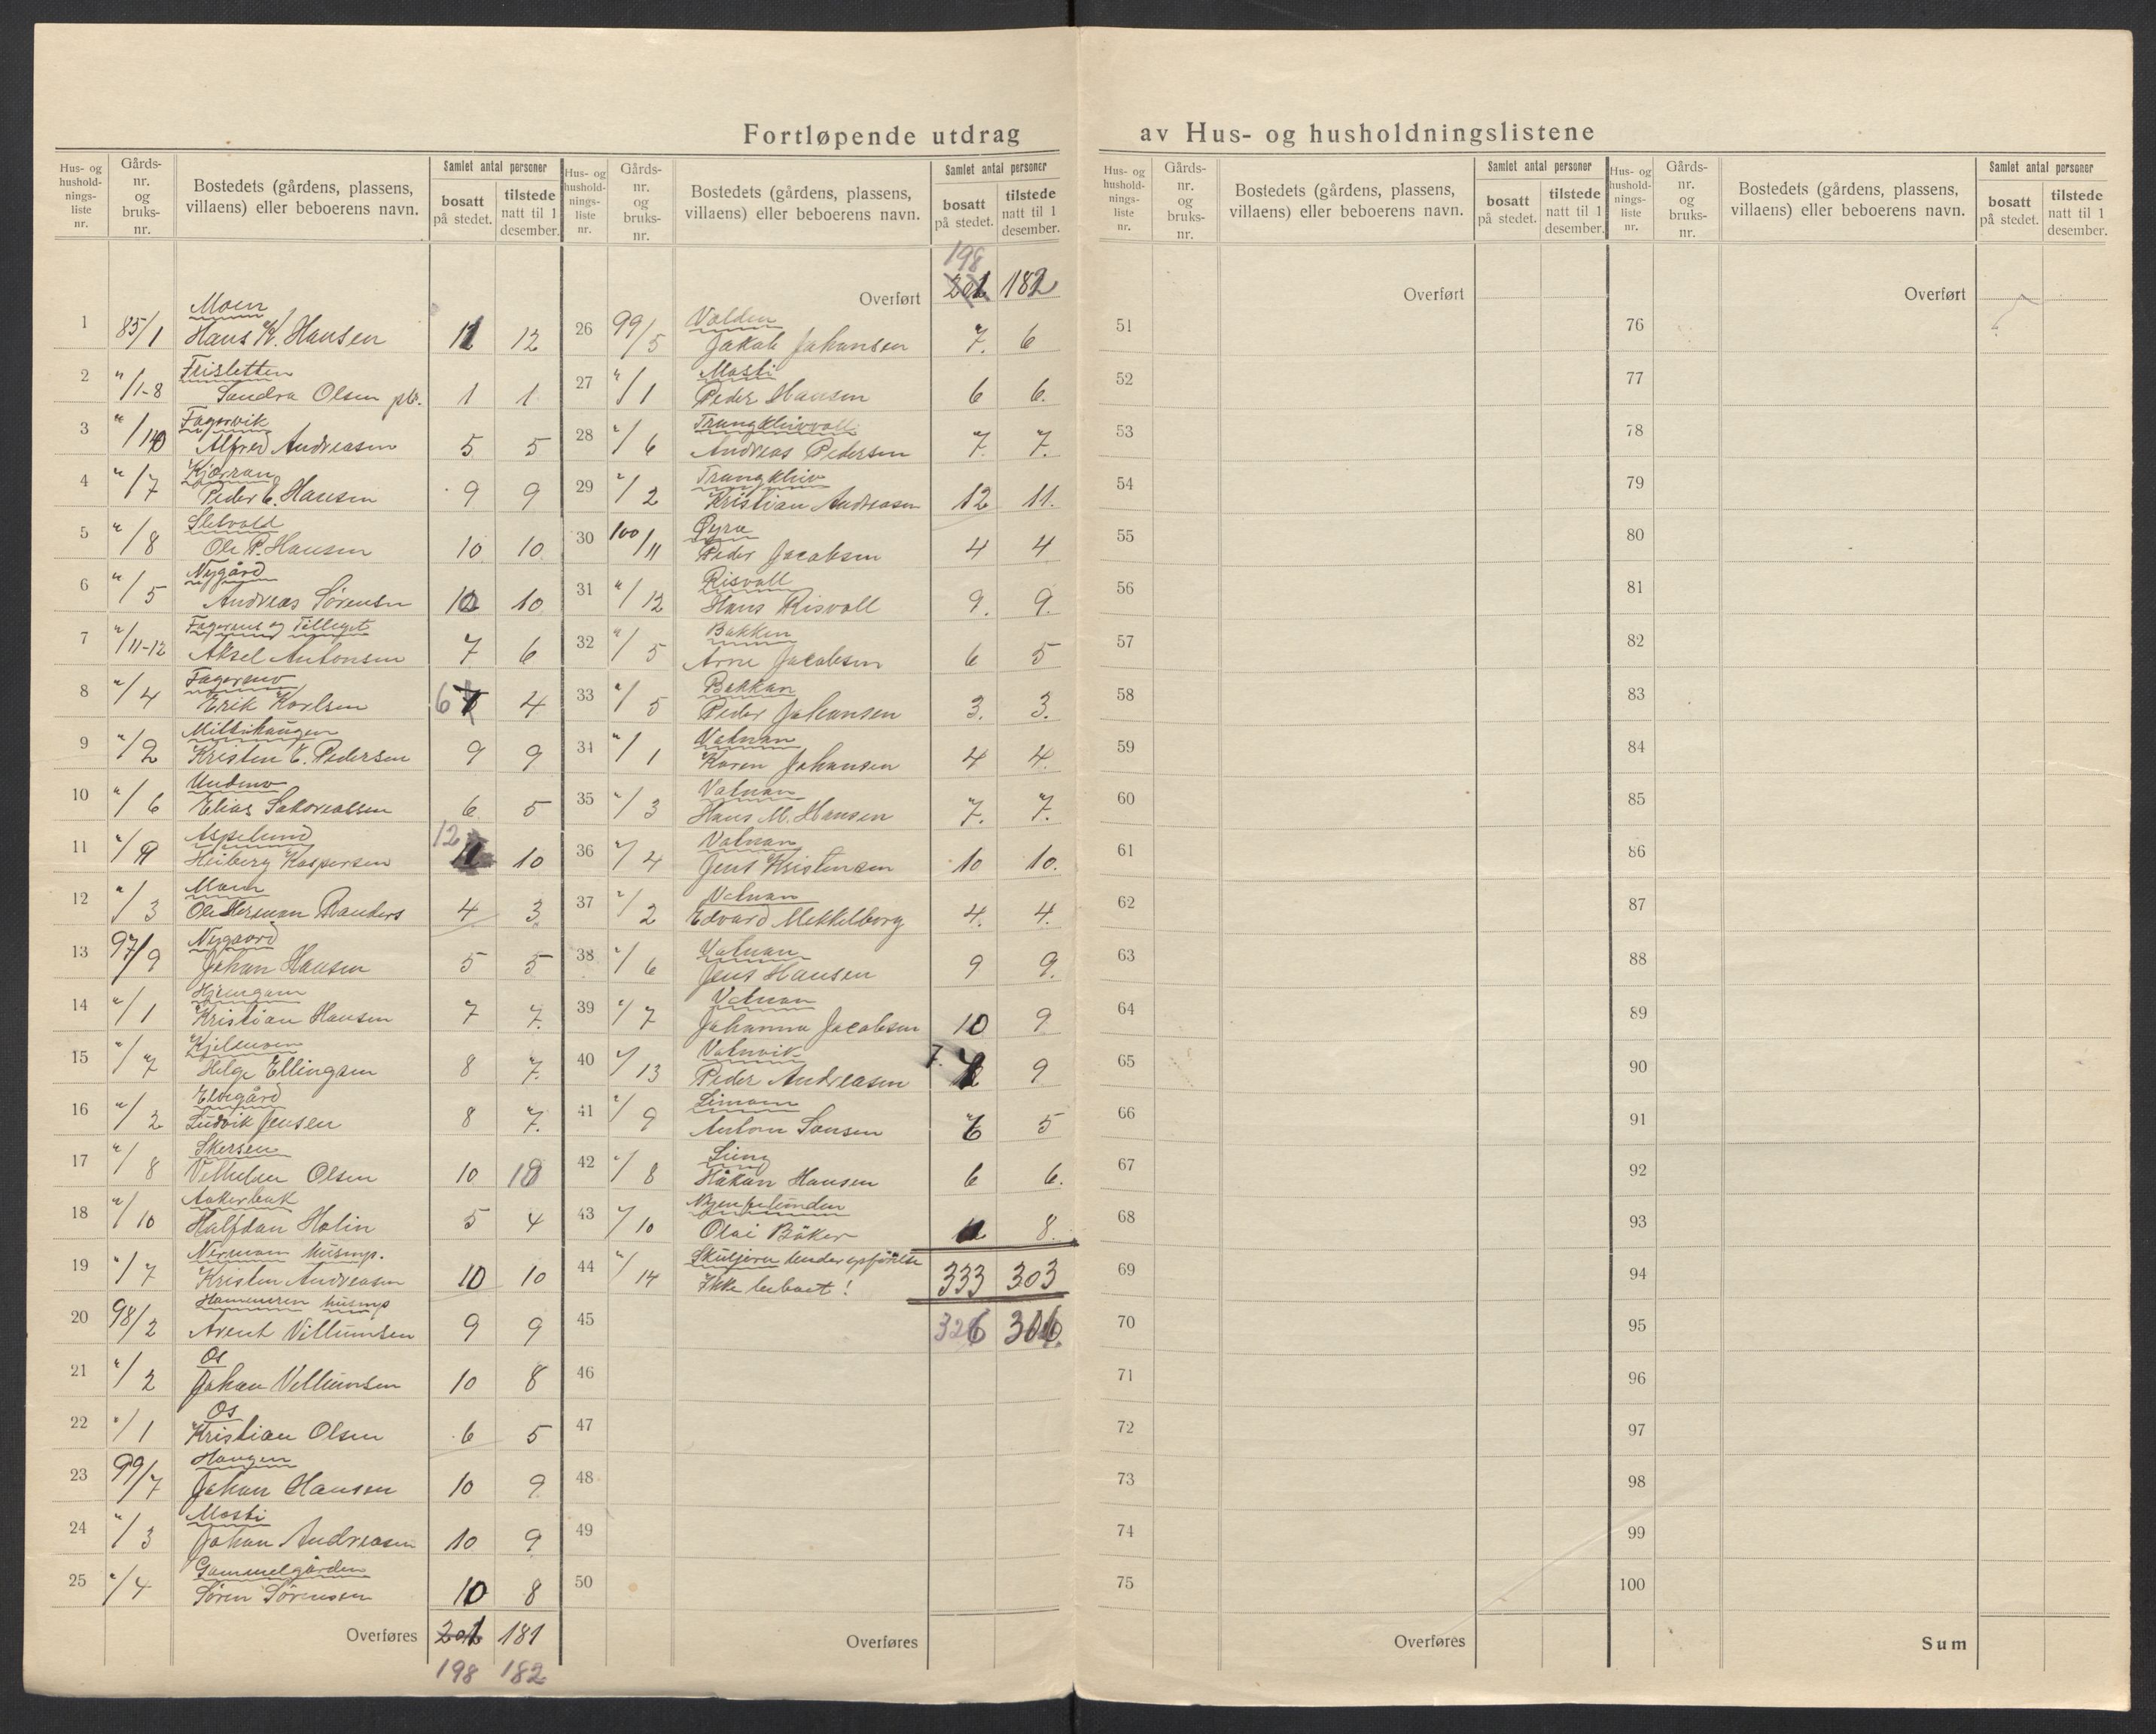 Fortløpende utdrag av Hus- og husholdningslistene
Hus- og hushold-nings-liste nr. Gårds-nr. og bruks-nr. Bostedets (gårdens, plassens, villaens) eller beboerens navn. Samlet antal personer bosatt på stedet. tilstede natt til 1 desember.
Moen
1 85/1 Hans K. Hansen 11 12
Flisletten
2 "/1-8 Sandra Olsen 1 1
Fagervik
3 Alfred Andreasen 5 5
Kjærran
4 "/7 Peder C. Hansen 9 9
Sletvold
5 "/8 Ole P. Hansen 10 10
Nygård
6 "/5 Andreas Sørensen 10 10
Fagernes og
7 "/11-12 Aksel Antonsen 7 6
8 "/4 Erik Karlsen 6 4
9 "/2 Kristen E. Pedersen 9 9
10 "/6 Elias 6 5
Aspelund
11 Heiberg Kaspersen 12 10
Moen
12 "/3 Ole Herman Randers 4 3
Nygaard
13 97/9 Johan Hansen 5 5
14 "/1 Kristian Hansen 7 7
15 "/7 Helge Ellingsen 8 7
Elvegård
16 "/2 Ludvik Jensen 8 7
17 "/8 Vilhelm Olsen 10
18 "/10 Halfdan Holin 5 4
husmp.
19 "/7 Kristen Andreasen 10 10
Hammeren husmp
20 98/2 Arent Villumsen 9 9
Os
21 "/2 Johan Villumsen 10 8
Os
22 "/1 Kristian Olsen 6 5
Haugen
23 99/7 Johan Hansen 10 9
Masti
24 "/3 Johan Andreasen 10 9
Gammelgården
25 "/4 Søren Sørensen 10 8
Overføres 201 181
198 182
Hus- og hushold-nings-liste nr. Gårds-nr. og bruks-nr. Bostedets (gårdens, plassens, villaens) eller beboerens navn. Samlet antal personer bosatt på stedet. tilstede natt til 1 desember.
198
Overført 201 182
Volden
26 99/5 Jakob Johansen 7. 6
Masti
27 "/1 Peder Hansen 6 6.
28 "/6 Andreas Pedersen 7. 7.
Trangkleiv
29 "/2 Kristian Andreasen 12 11.
Øyra
30 100/11 Peder Jacobsen 4 4
Risvoll
31 "/12 Hans Risvoll 9. 9.
Bakken
32 "/5 Arne Jacobsen 6 5
Bakkan
33 "/5 Peder Johansen 3. 3.
Vatnan
34 "/1 Karen Johansen 4 4.
Vatnan
35 "/3 Hans M. Hansen 7. 7.
Vatnan
36 "/4 Jens Kristensen 10 10.
Vatnan
37 "/2 Edvard Mekkelborg 4. 4.
Vatnan
38 "/6 Jens Hansen 9 9.
Vatnan
39 "/7 Johanna Jacobsen 10 9
Vatnvik
40 "/13 Peder Andreasen 9
41 "/9 Anton 6 5
42 "/8 Håkon Hansen 6 6.
43 "/10 Olai Bäker 8.
44 "/14 under opførelse
Ikke beboet! 333 303
45 326
46
47
48
49
50
Overføres
Hus- og hushold-nings-liste nr. Gårds-nr. og bruks-nr. Bostedets (gårdens, plassens, villaens) eller beboerens navn. Samlet antal personer bosatt på stedet. tilstede natt til 1 desember.
Overført
51
52
53
54
55
56
57
58
59
60
61
62
63
64
65
66
67
68
69
70
71
72
73
74
75
Overføres
Hus- og hushold-nings-liste nr. Gårds-nr. og bruks-nr. Bostedets (gårdens, plassens, villaens) eller beboerens navn. Samlet antal personer bosatt på stedet. tilstede natt til 1 desember.
Overført
76
77
78
79
80
81
82
83
84
85
86
87
88
89
90
91
92
93
94
95
96
97
98
99
100
Sum